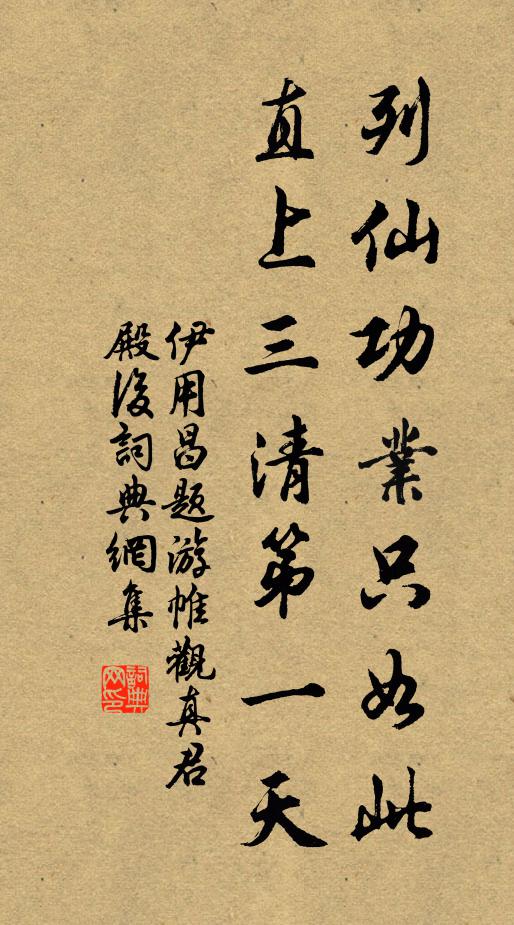 列仙功業只如此
直上三清第一天
伊用昌題游帷觀真君
殿後詞典網集
詞典網印